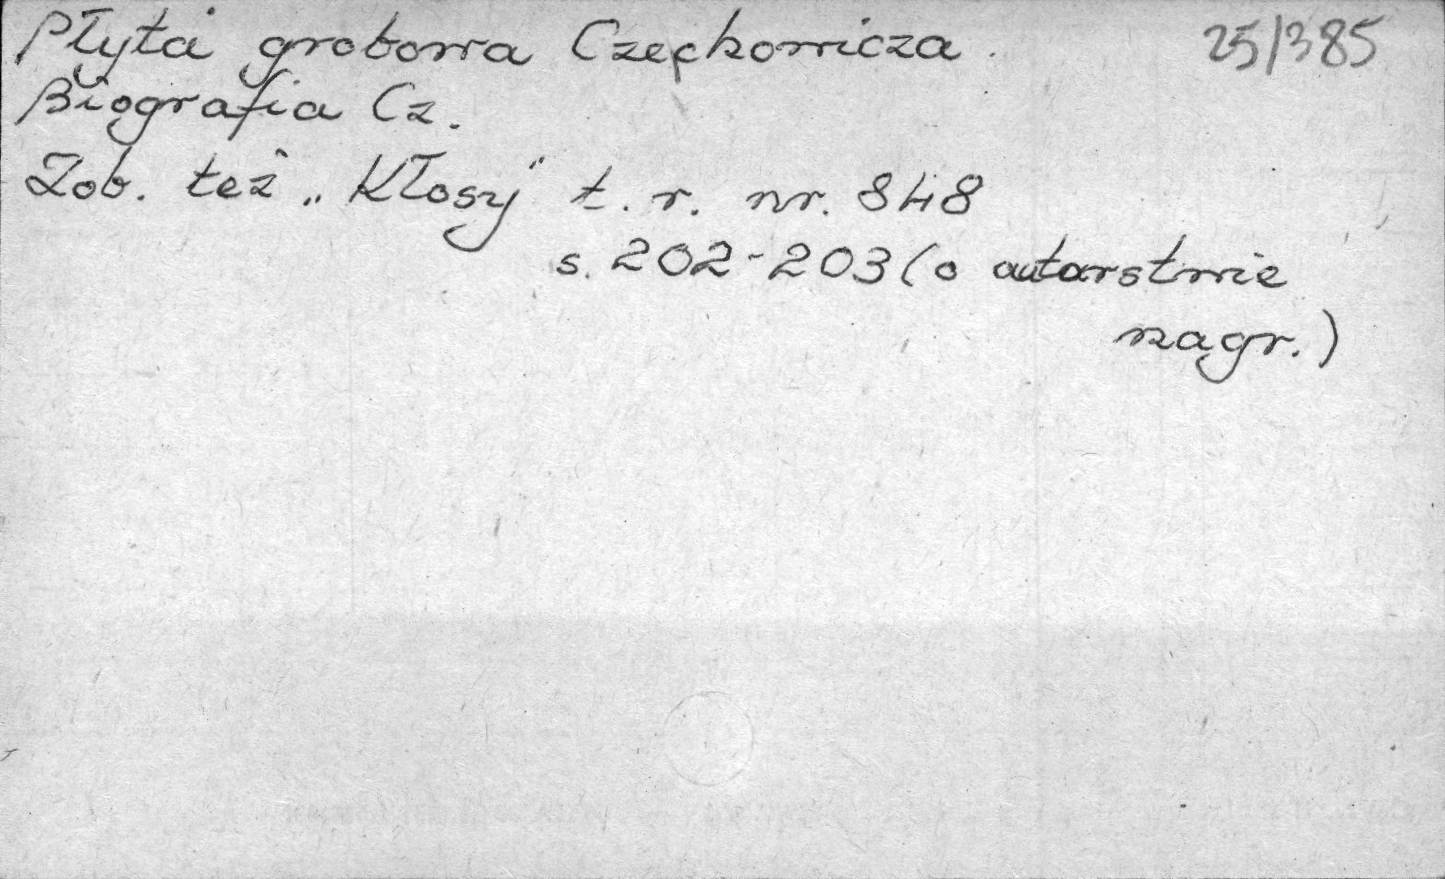 Płyta grobowa Czępkowicza 25/385
Biografia Cz.
Zob. też „Kłosy" t. r. nr. 848
s. 202-203 (o autorstwie
nagr.)